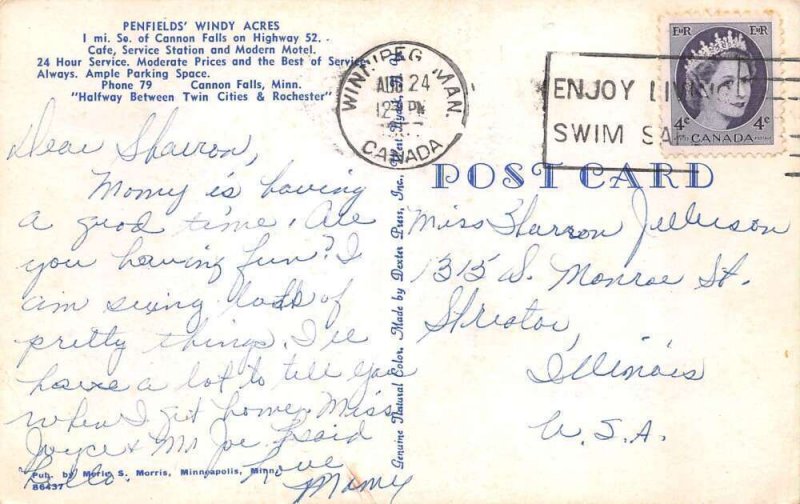 PENFIELDS' WINDY ACRES
1 mi. So. of Cannon Falls on Highway 52.
Cafe, Service Station and Modern Motel.
24 Hour Service. Moderate Prices and the Best of Service
Always. Ample Parking Space.
Phone 79 Cannon Falls, Minn.
"Halfway Between Twin Cities & Rochester"
WINNIPEG MAN.
AUG 24
12 PM
CANADA
ENJOY LIVING
SWIM SA
E II R E II R
4c CANADA 4c
POST CARD
Dear Sharron,
Momy is having
a good time. Are
you having fun? I
am seeing lots of
pretty things. I'll
have a lot to tell you
when I get home. Miss
Joyce & Mr Joe said
hello.
Love
Momy
Miss Sharron
1315 S. Monroe St.
Streator,
Illinois
U.S.A.
Genuine Natural Color. Made by Dexter Press, Inc., West Nyack, N.Y.
Pub. by Merle S. Morris, Minneapolis, Minn.
86437